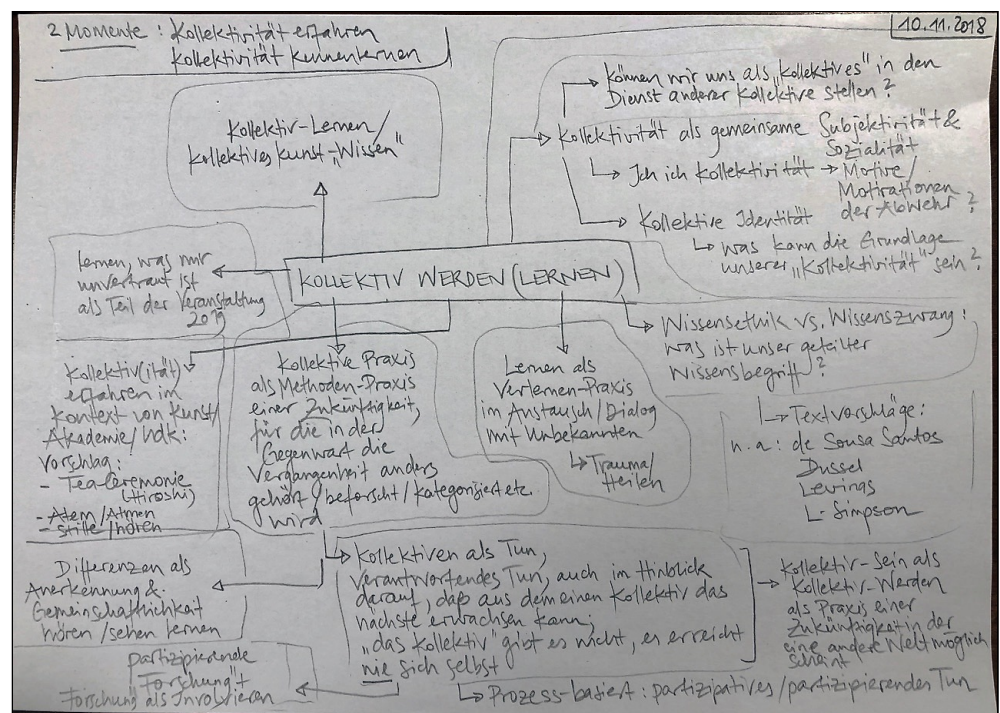 2 Momente : Kollektivität erfahren
Kollektivität kennenlernen
10.11.2018
Kollektiv-Lernen/
kollektives Kunst-„Wissen"
können wir uns als „kollektives" in den
Dienst anderer Kollektive stellen?
Kollektivität als gemeinsame Subjektivität &
Sozialität
Ich ich Kollektivität → Motive/
Motivationen
der Abwehr?
Kollektive Identität
was kann die Grundlage
unserer „Kollektivität" sein?
lernen, was mir
unvertraut ist
als Teil der Veranstaltung
2019
KOLLEKTIV WERDEN (LERNEN)
Wissensethik vs. Wissenszwang:
was ist unser geteilter
Wissensbegriff?
Textvorschläge:
u.a.: de Sousa Santos
Dussel
Levings
L. Simpson
Kollektiv(ität)
erfahren im
Kontext von Kunst/
Akademie/UdK:
Vorschlag:
- Tea Ceremonie
(Hiroshi)
- Atem/Atmen
- Stille/hören
Kollektive Praxis
als Methoden-Praxis
einer Zukünftigkeit,
für die in der
Gegenwart die
Vergangenheit anders
gehört/beforscht/kategorisiert etc.
wird
Lernen als
Verlernen-Praxis
im Austausch/Dialog
mit Unbekannten
Trauma/
Heilen
Differenzen als
Anerkennung &
Gemeinschaftlichkeit
hören/sehen lernen
Kollektiven als Tun,
verantwortendes Tun, auch im Hinblick
darauf, daß aus dem einen Kollektiv das
nächste erwachsen kann;
„das Kollektiv" gibt es nicht, es erreicht
nie sich selbst
Kollektiv-Sein als
Kollektiv-Werden
als Praxis einer
Zukünftigkeit in der
eine andere Welt möglich
scheint
partizipierende
Forschung +
Forschung als Involvieren
Prozess-basiert: partizipatives/partizipierendes Tun